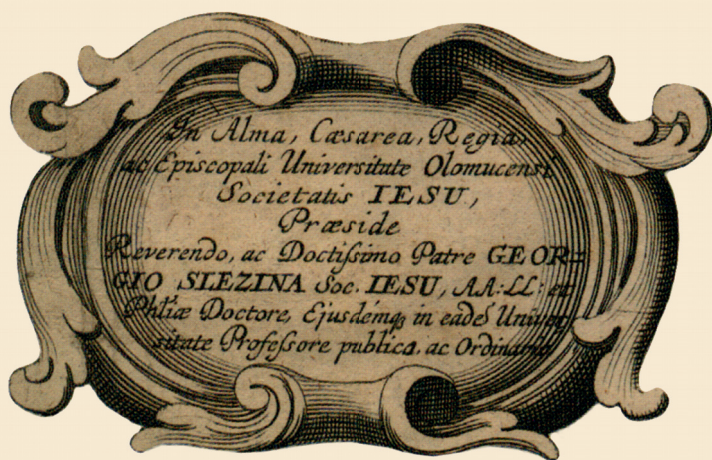 In Alma, Cæsarea, Regia,
ac Episcopali Universitate Olomucensi
Societatis IESU,
Præside
Reverendo, ac Doctiſsimo Patre GEOR=
GIO SLEZINA Soc. IESU, AA: LL: et
Phliæ Doctore, Ejusdémq; in eadẽ Univer
sitate Profeſsore publico, ac Ordinario